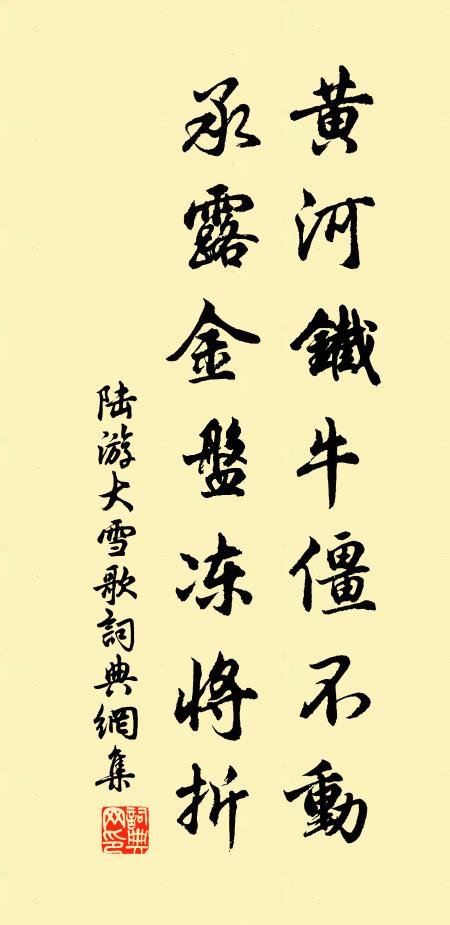 黄河鐵牛僵不動
承露金盤冻將折
陆游大雪歌詞典網集
詞典网印